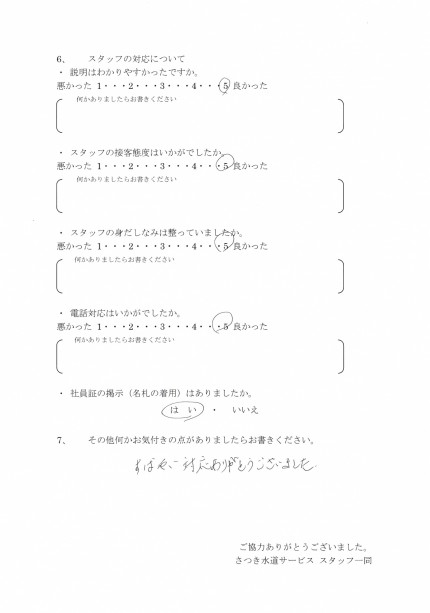 6、 スタッフの対応について
・ 説明はわかりやすかったですか。
悪かった 1・・・2・・・3・・・4・・・5 良かった
何かありましたらお書きください
・ スタッフの接客態度はいかがでしたか。
悪かった 1・・・2・・・3・・・4・・・5 良かった
何かありましたらお書きください
・ スタッフの身だしなみは整っていましたか。
悪かった 1・・・2・・・3・・・4・・・5 良かった
何かありましたらお書きください
・ 電話対応はいかがでしたか。
悪かった 1・・・2・・・3・・・4・・・5 良かった
何かありましたらお書きください
・ 社員証の掲示（名札の着用）はありましたか。
はい ・ いいえ
7、 その他何かお気付きの点がありましたらお書きください。
すばやい対応ありがとうございました
ご協力ありがとうございました。
さつき水道サービス スタッフ一同